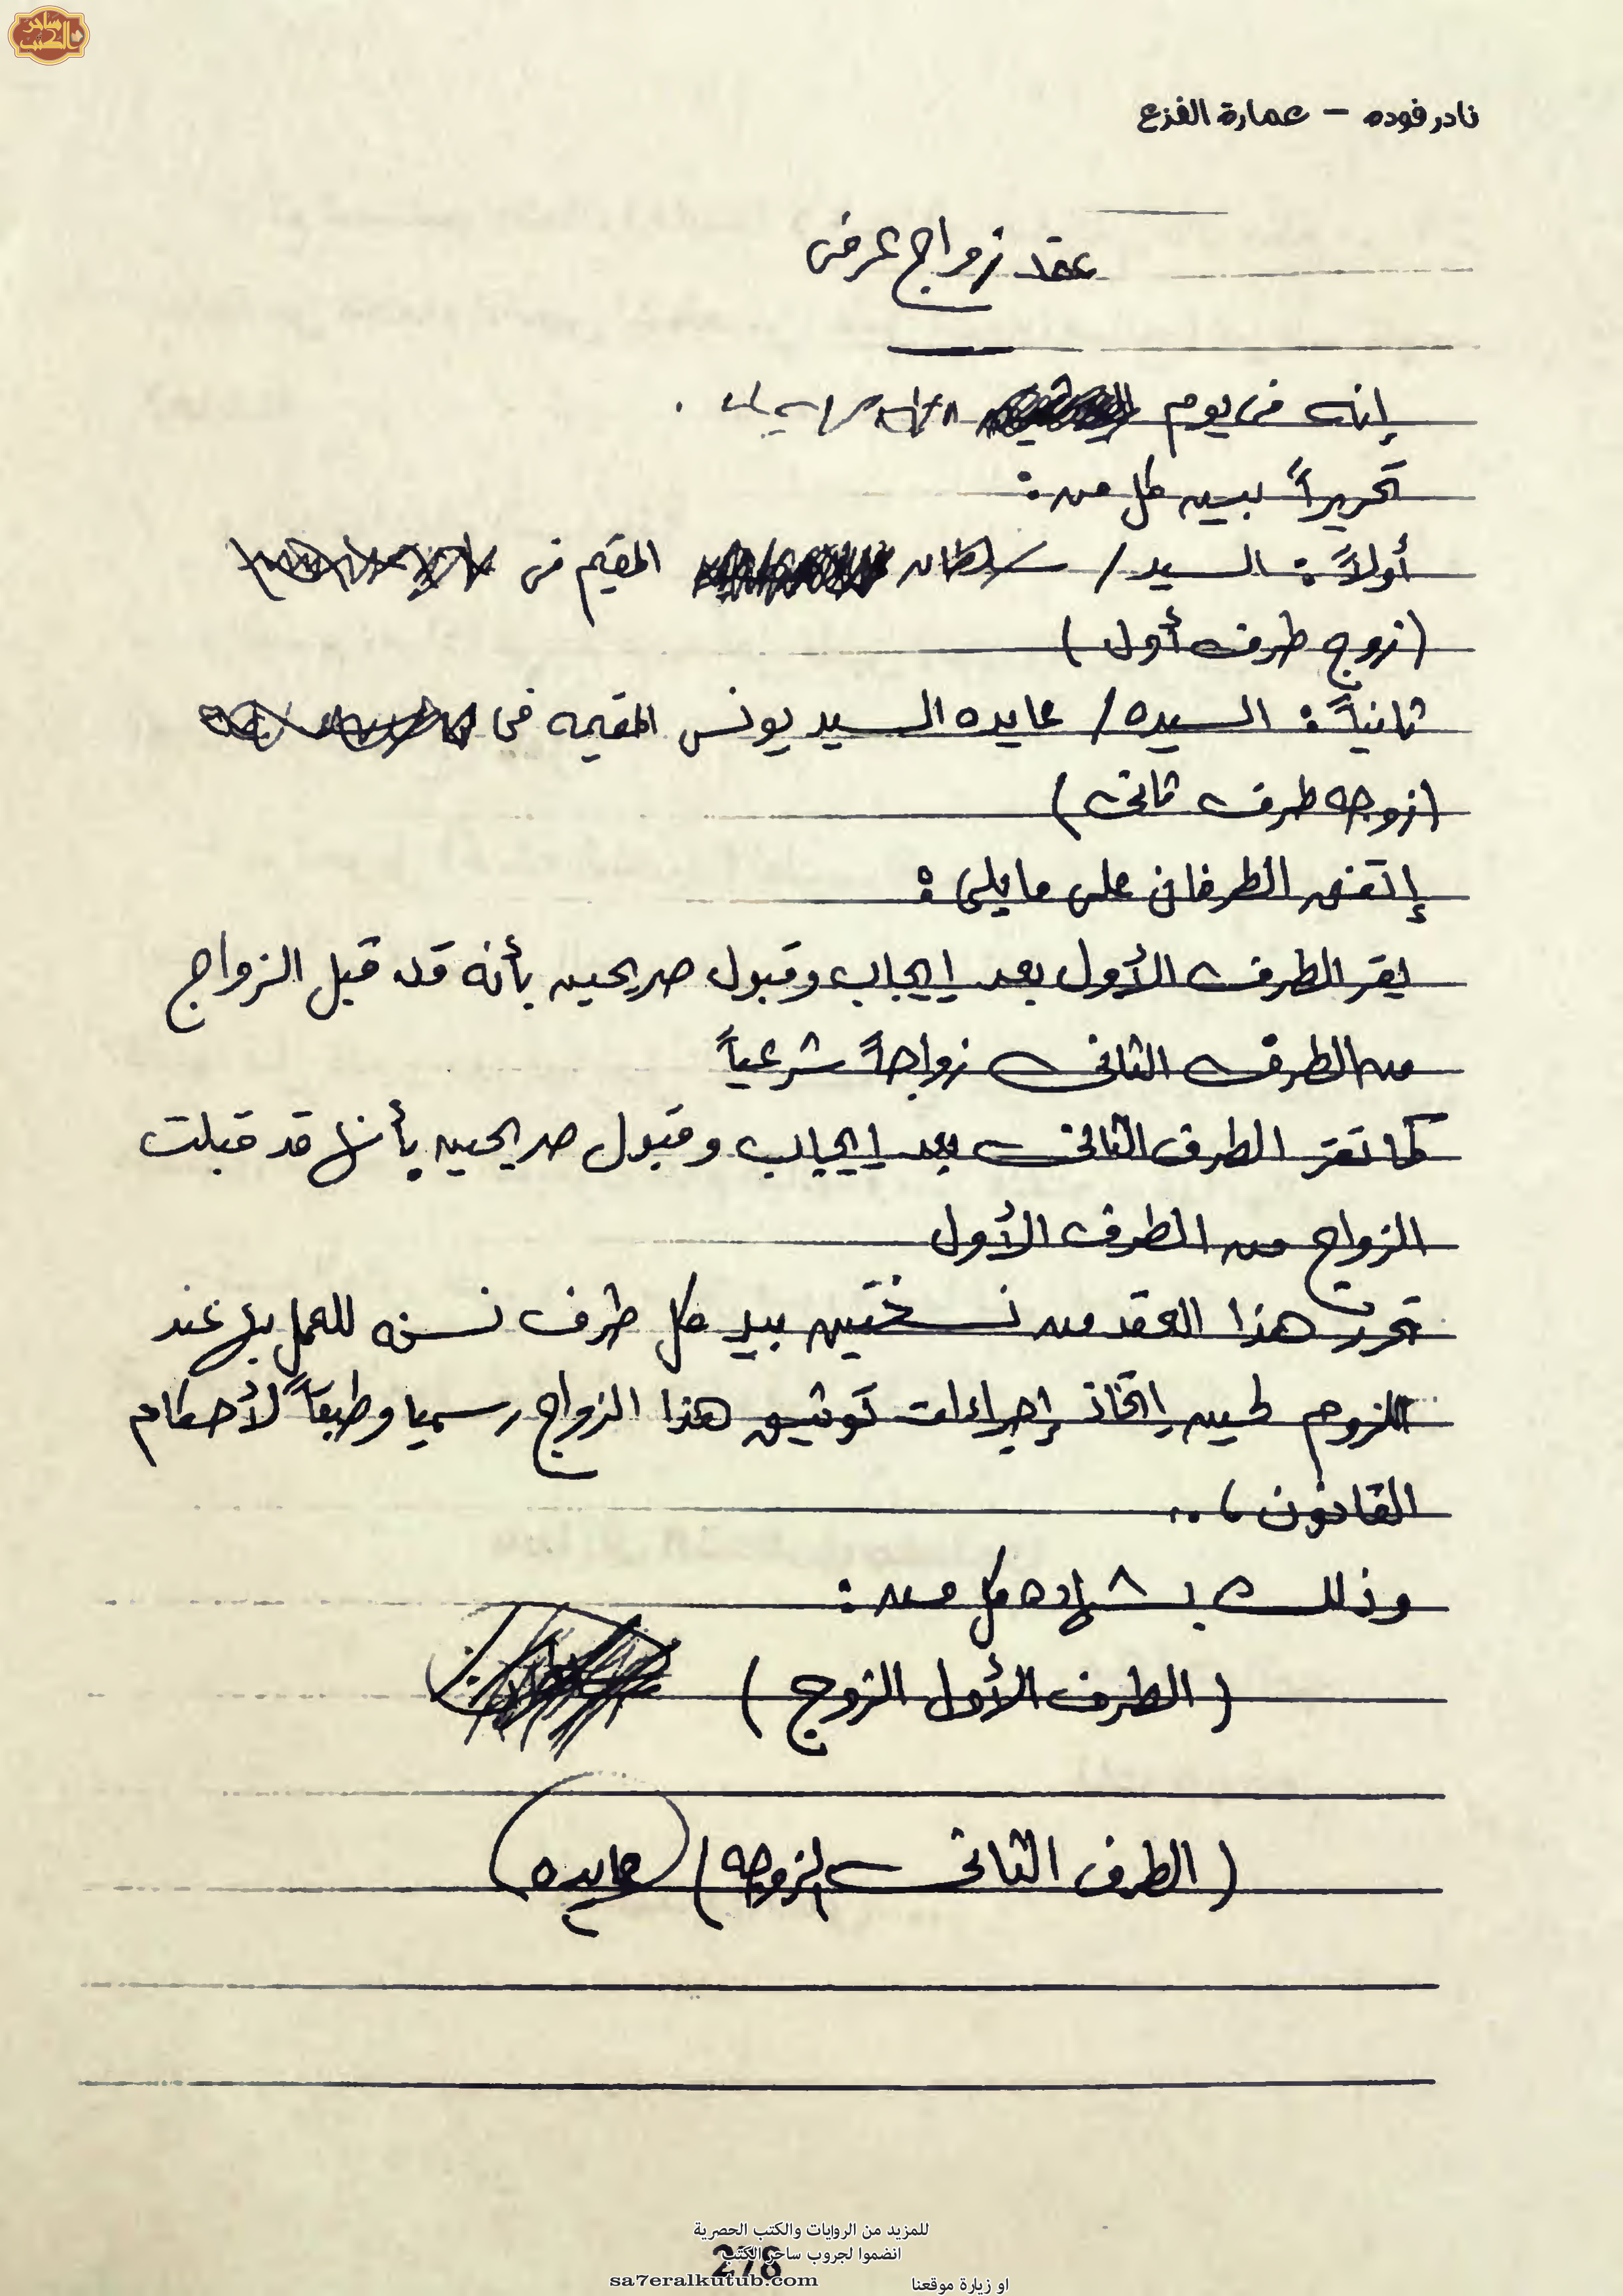 ساحر الكتب
نادر فوده - عمارة الفزع
عقد زواج عرفى
إنه فى يوم
تحريراً بين كل من :
أولاً : السيد / سلطان المقيم فى
(زوج طرف أول)
ثانياً : السيده / عايده السيد يونس المقيمه فى
(زوجه طرف ثانى)
إتفق الطرفان على ما يلى :
يقر الطرف الأول بعد إيجاب وقبول صريحين بأنه قد قبل الزواج
من الطرف الثانى زواجاً شرعياً
كما تقر الطرف الثانى بعد إيجاب وقبول صريحين بأنها قد قبلت
الزواج من الطرف الأول
تحرر هذا العقد من نسختين بيد كل طرف نسخه للعمل بها عند
اللزوم لحين إتخاذ إجراءات توثيق هذا الزواج رسميا وطبقاً لأحكام
القانون ،..
وذلك بشهاده كل من :
(الطرف الأول الزوج)
(الطرف الثانى الزوجه) عايده
للمزيد من الروايات والكتب الحصرية
انضموا لجروب ساحر الكتب
278
او زيارة موقعنا sa7eralkutub.com